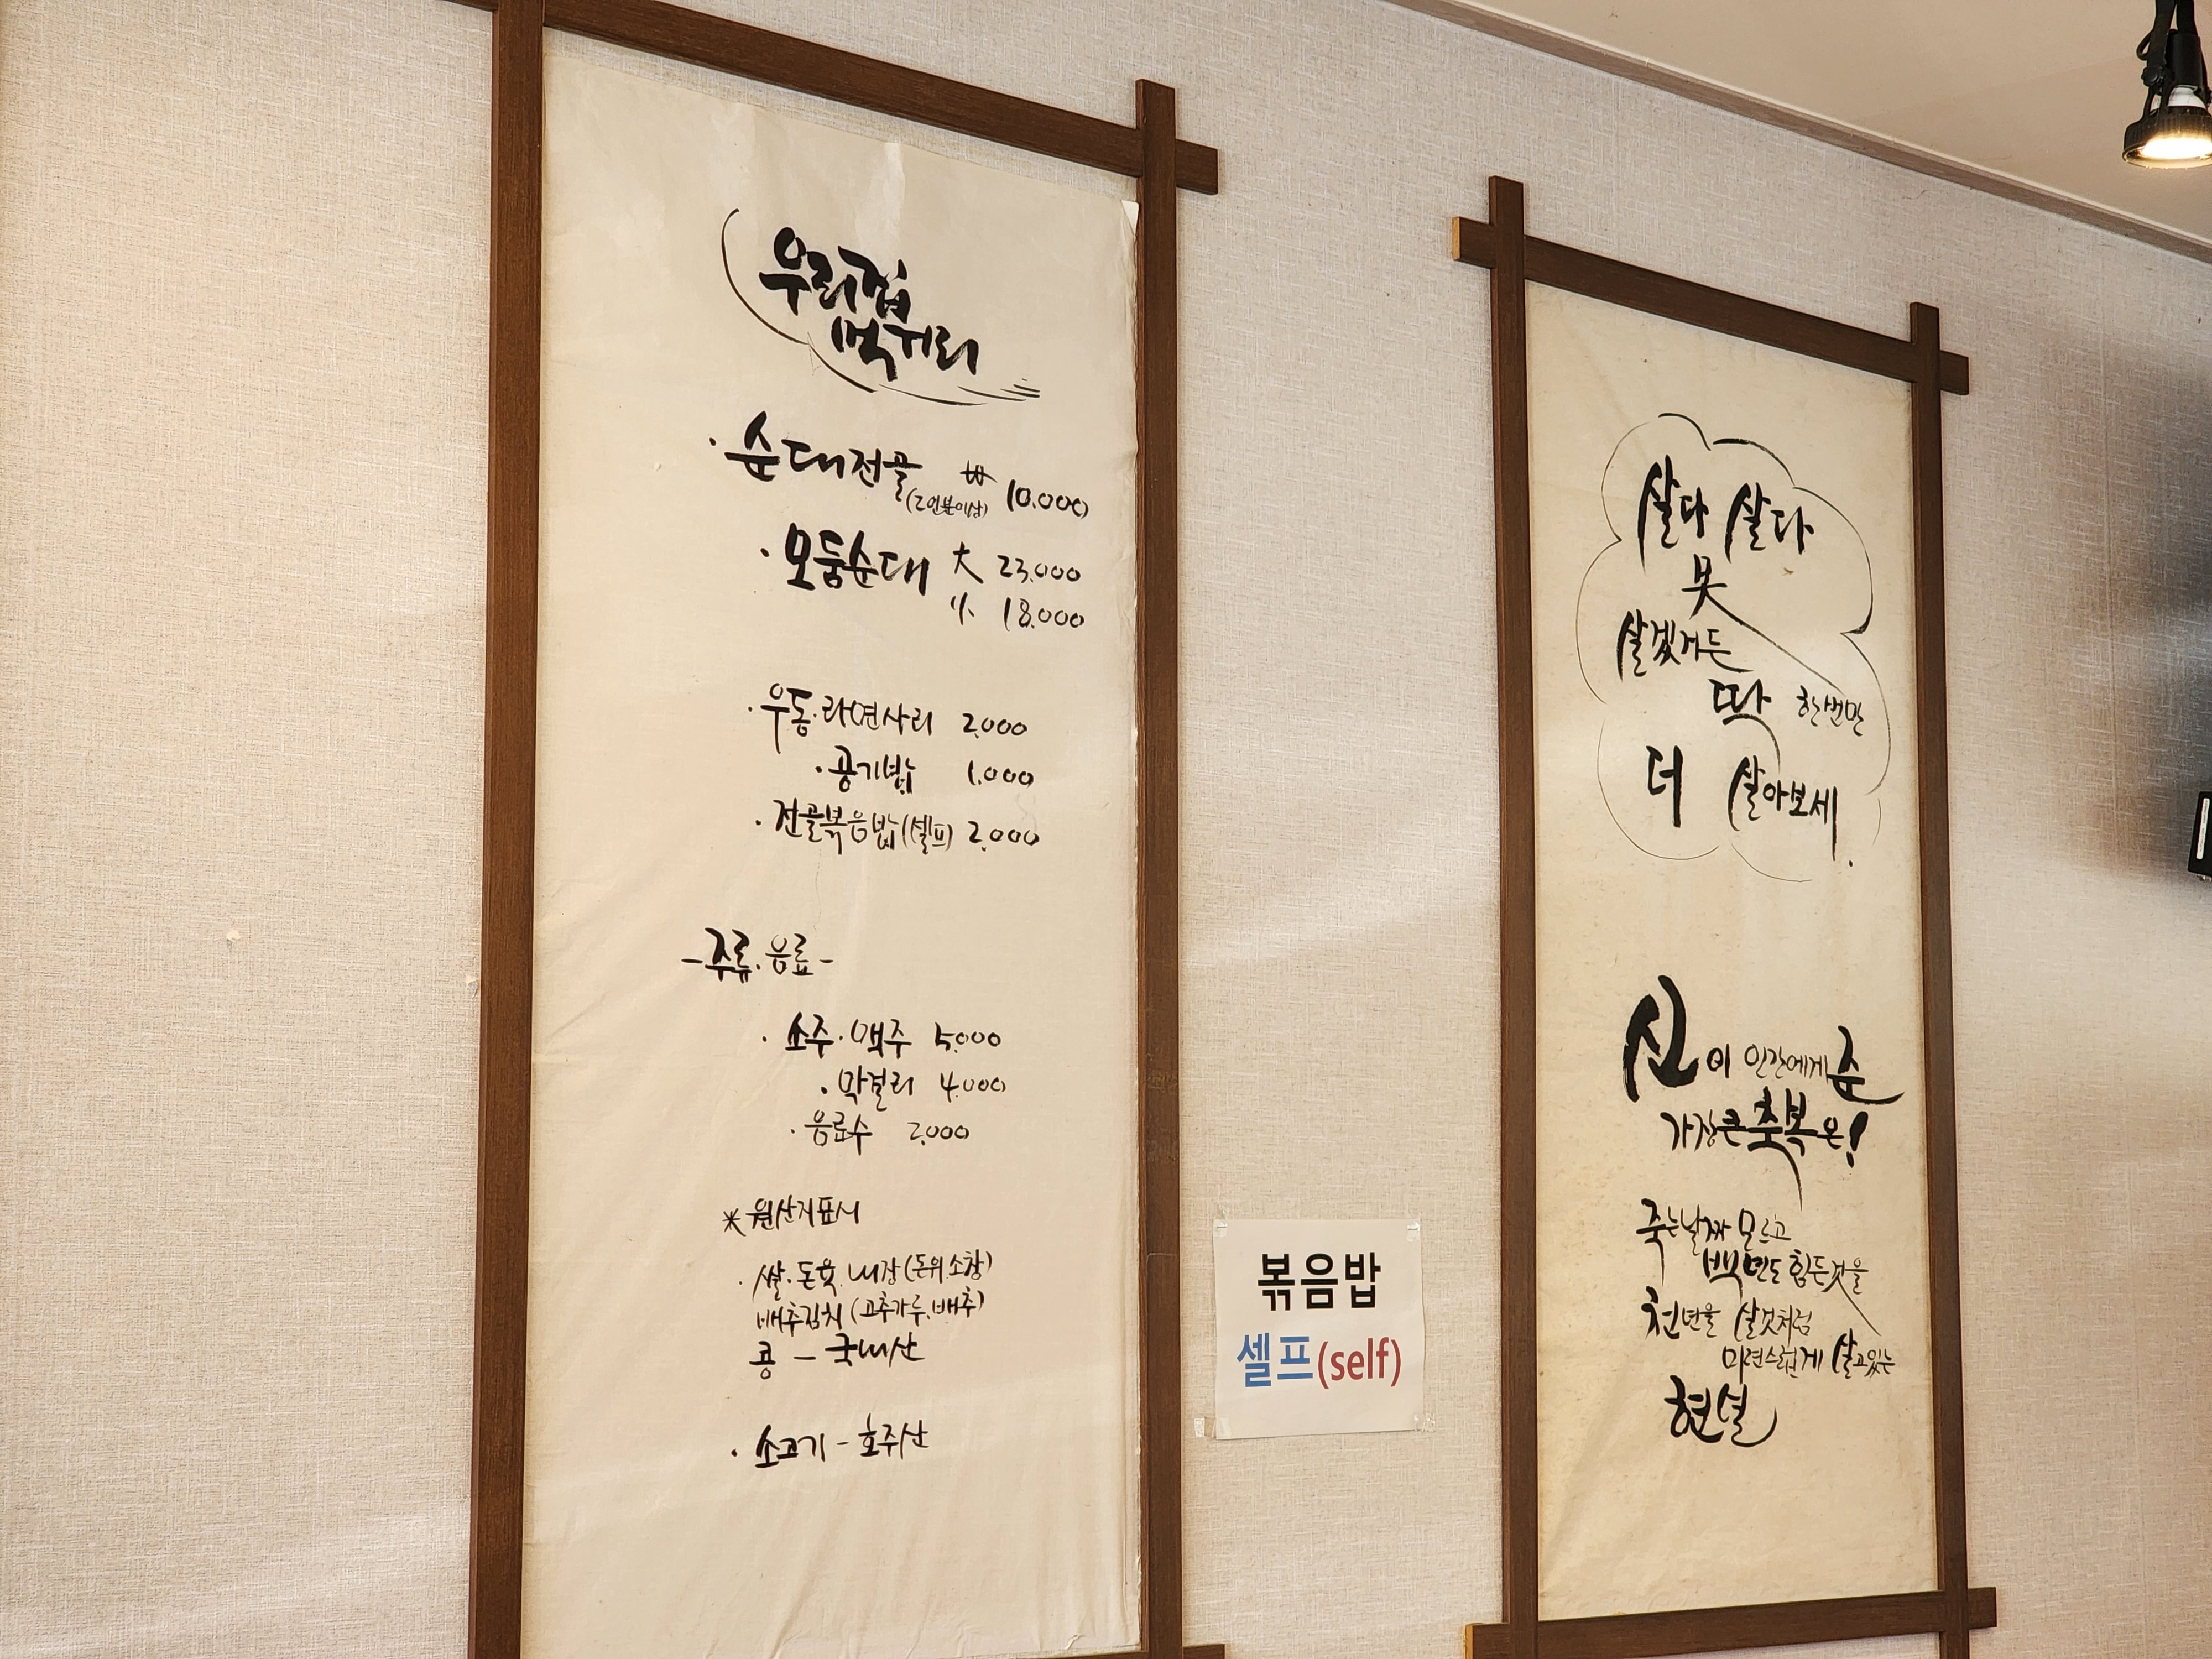 우리집
먹거리
· 순대전골 (2인분이상) ₩ 10.000
· 모둠순대 大 23.000
小 18.000
· 우동·라면사리 2.000
· 공기밥 1.000
· 전골볶음밥(셀프) 2.000
-주류.음료-
· 소주·맥주 5.000
· 막걸리 4.000
· 음료수 2.000
※ 원산지표시
· 쌀.돈육.내장(돈위.소창)
배추김치(고추가루.배추)
콩 - 국내산
· 소고기 - 호주산
볶음밥
셀프(self)
살다 살다
못
살겠거든
딱 한번만
더 살아보세.
신이 인간에게 준
가장큰 축복은!
죽는날짜 모르고
백년도 힘든것을
천년을 살것처럼
미련스럽게 살고있는
현실